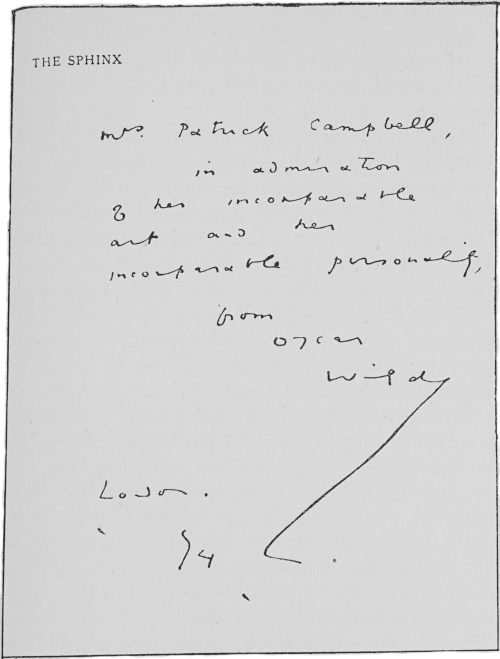 THE SPHINX
Mrs. Patrick Campbell,
in admiration
of her incomparable
art and her
incomparable personality,
from
Oscar
Wilde
London.
'94.